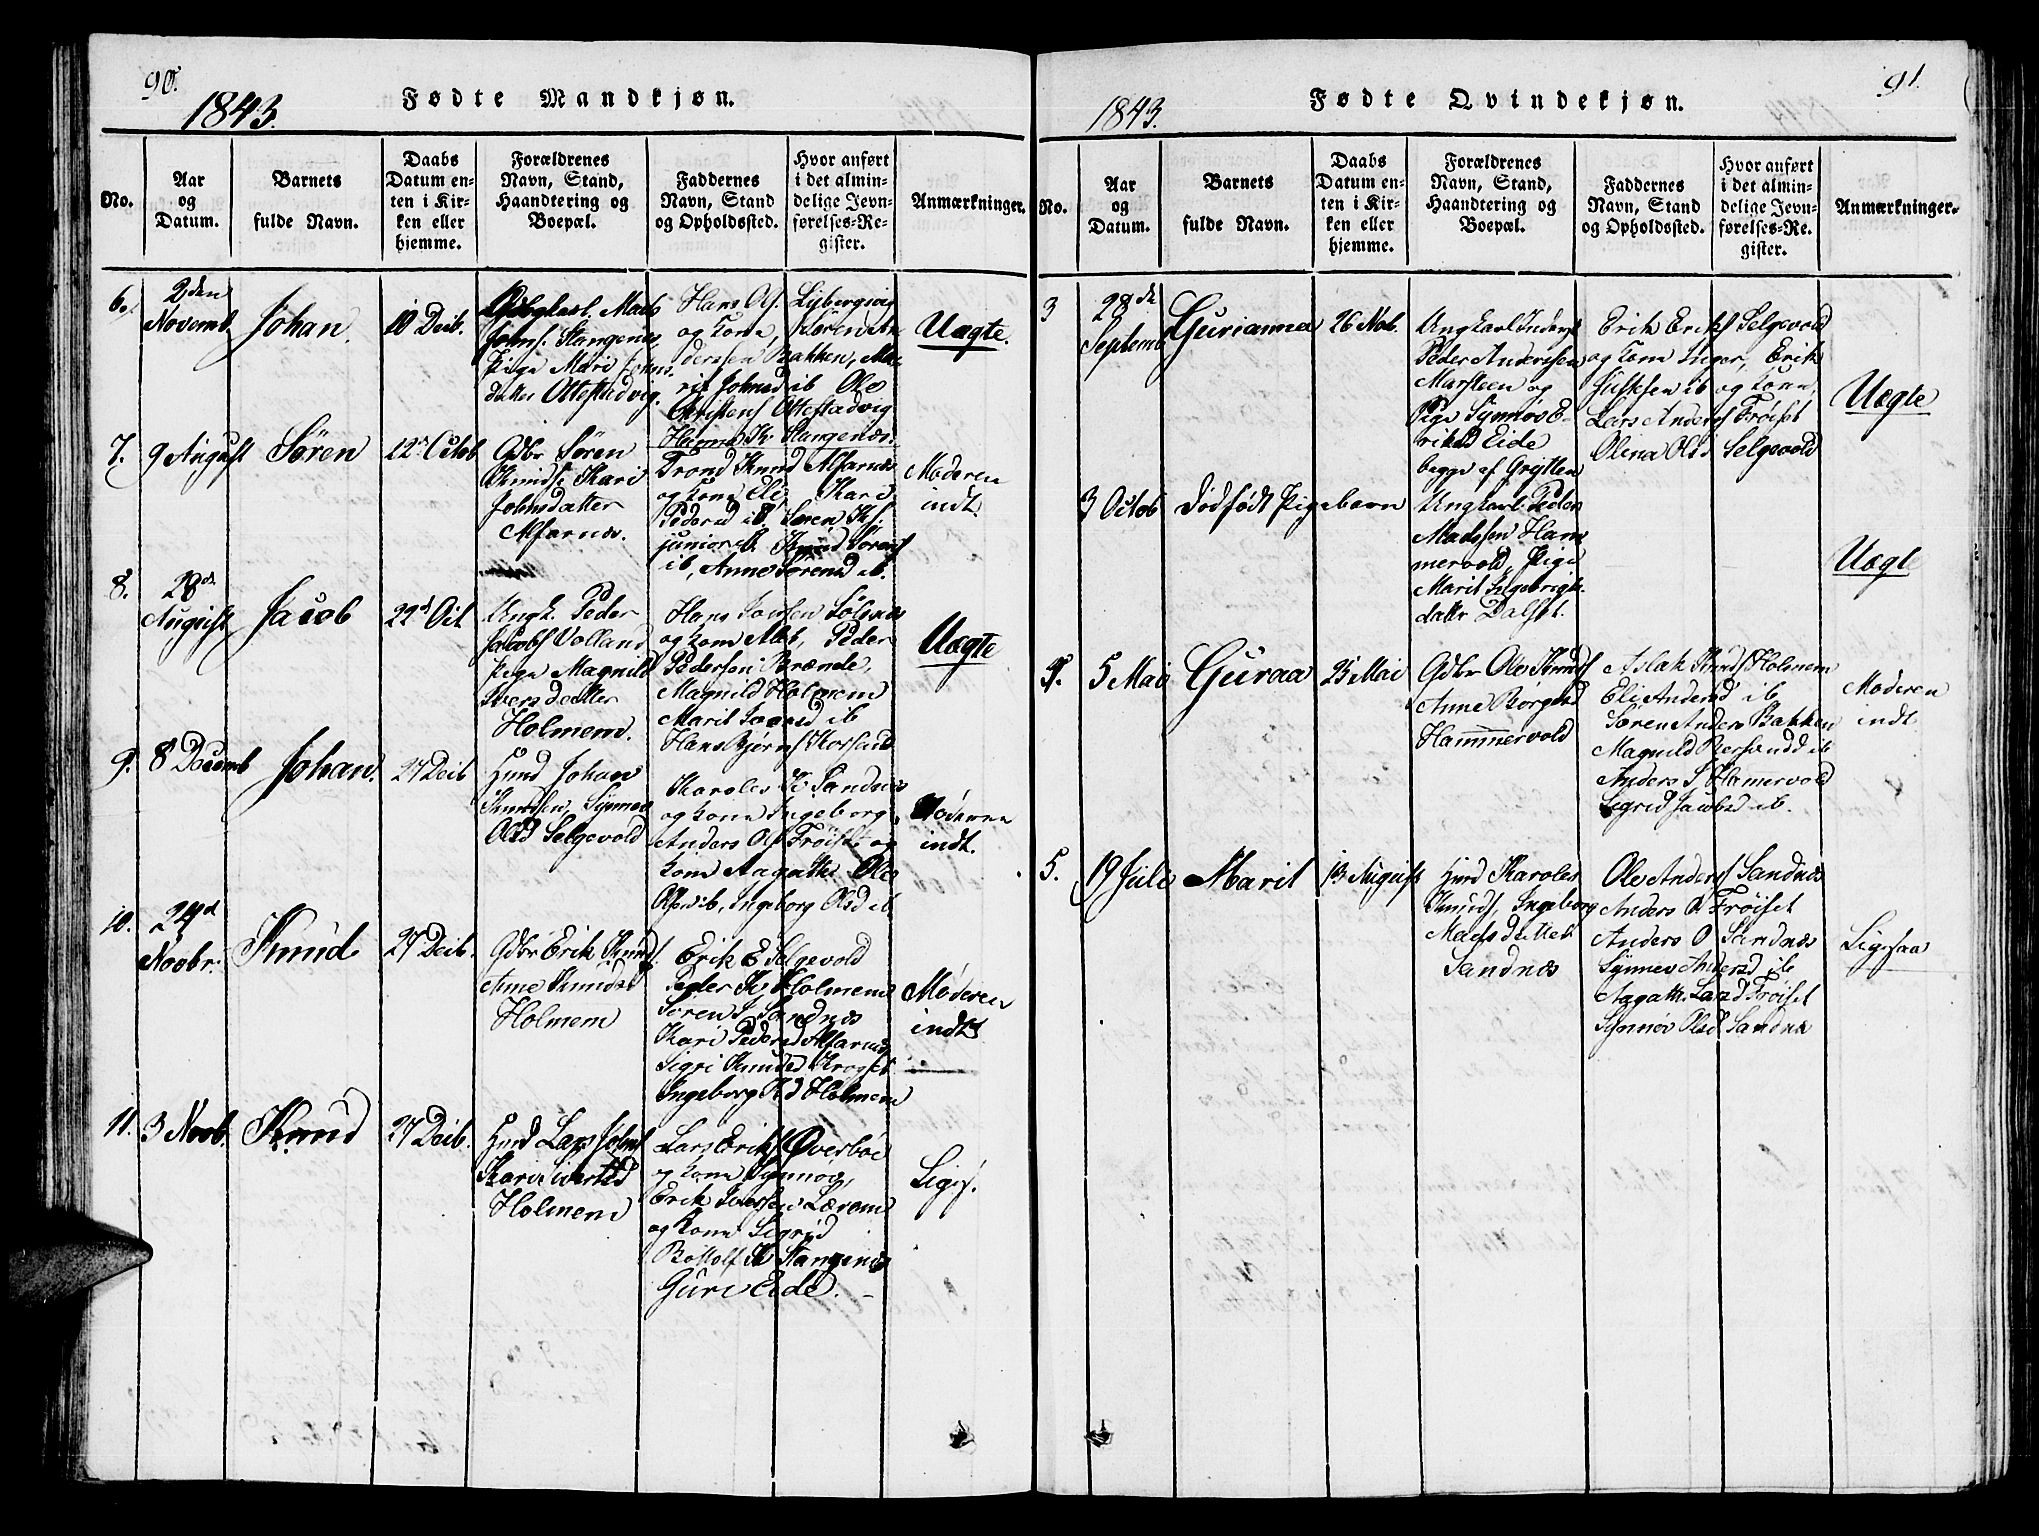 90.
1843.
Fødte Mandkjøn.
No.
Aar
og
Datum.
Barnets
fulde Navn.
Daabs
Datum en-
ten i Kir-
ken eller
hjemme.
Forældrenes
Navn, Stand,
Haandtering og
Boepæl.
Faddernes
Navn, Stand
og Opholdssted.
Hvor anført
i det almin-
delige Jevn-
førelses-Re-
gister.
Anmærkninger.
6.
2den
Novemb.
Johan.
10 Decb.
Mads
Johns. Stangenes,
Pige Mari Johns-
datter Ottestadvig.
Hans Ols. Lybergsvig
og Kone, Søren An-
derssen Bakken, Ma-
rit Johnsd ib Ole
Christens Ottestadvig
Hanna K. Stangenæs.
Uægte.
7.
9 August
Søren
12 Octob
Gdbr Søren
Knuds. Kari
Johnsdatter
Alfarnæs.
Trond Knuds Alfarnæs
og Kone Eli, Kari
Pedersd ib. Søren Ks.
junior ib. Knud Sørens
ib, Anne Sørensd ib.
Moderen
indt.
8.
28de
August
Jacob
22d Oct
Ungk. Peder
Jacobs Volland
Pige Magnild
Iversdatter
Holmem.
Hans Iversen Sølsnæs
og Kone Mbt, Peder
Pedersen Brænde,
Magnild Holmem
Marit Iversd ib
Hans Bjørns Korsand
Uægte
9.
8 Decemb
Johan.
27 Decb
Husmd Johan
Knudsen, Synnev
Olsd Selgevold
Karoles K. Sandnæs
og Kone Ingeborg,
Anders Ols Frøiset og
Kone Aagathe Ole
Olsen ib, Ingeborg Olsd ib
Moderen
indt.
10.
24d
Novbr.
Knud
27 Decb.
Gdbr Erik Knuds.
Anne Knudsd
Holmem
Erik E Selgevold
Peder K. Holmem
Søren J. Sandnæs
Kari Pedersd Alfarnæs,
Sigri Knudsd Krogset
Ingeborg Rd Holmem
Moderen
indt
11.
3 Novb.
Knud
27 Decb.
Husmd Lars Johns
Kari Sivertsd
Holmem
Lars Eriks Øverbøe
og Kone Synnøv,
Erik Iversen Lærem
og Kone Sigrid
Bottolf K. Stangenæs
Guri Eide.
Liges.
91.
1843.
Fødte Qvindekjøn.
No.
Aar
og
Datum.
Barnets
fulde Navn.
Daabs
Datum en-
ten i Kir-
ken eller
hjemme.
Forældrenes
Navn, Stand,
Haandtering og
Boepæl.
Faddernes
Navn, Stand
og Opholdssted.
Hvor anført
i det almin-
delige Jevn-
førelses-Re-
gister.
Anmærkninger.
3
28de
Septemb
Gurianna
26 Nob.
Ungkarl Inderst
Peder Anderssen
Marsteen og
Pige Synnøv E-
riksd Eide
begge af Grytten
Erik Eriks Selgevold
og Kone Inger, Erik
ib og Kone,
Lars Anders Frøiset
Olina Olsd Selgevold
Uægte
3 Octob
Dødfødt Pigebarn
Ungkarl Peder
Madssen Ham
mervold, Pige
Marit Ingebrigts
datter Dalset.
Uægte
4.
5 Mai
Guraa
25 Mai
Gdbr Ole Knuds
Anne Børgesd
Hammervold
Aslak Knuds Holmem
Eli Andersd ib
Søren Anders Bakken
Magnild Bersvendd ib
Anders S Hamervold
Sigrid Jacobsd ib.
Moderen
indt
5.
19 Juli
Marit
13 August
Husmd Karoles
Knuds, Ingeborg
Madsdatter
Sandnæs
Ole Anders Sandnæs
Anders O Frøiset
Anders O Sandnæs
Synnev Andersd ib
Aagath. Larsd Frøiset
Synnøv Olsd Sandnæs
Ligesaa